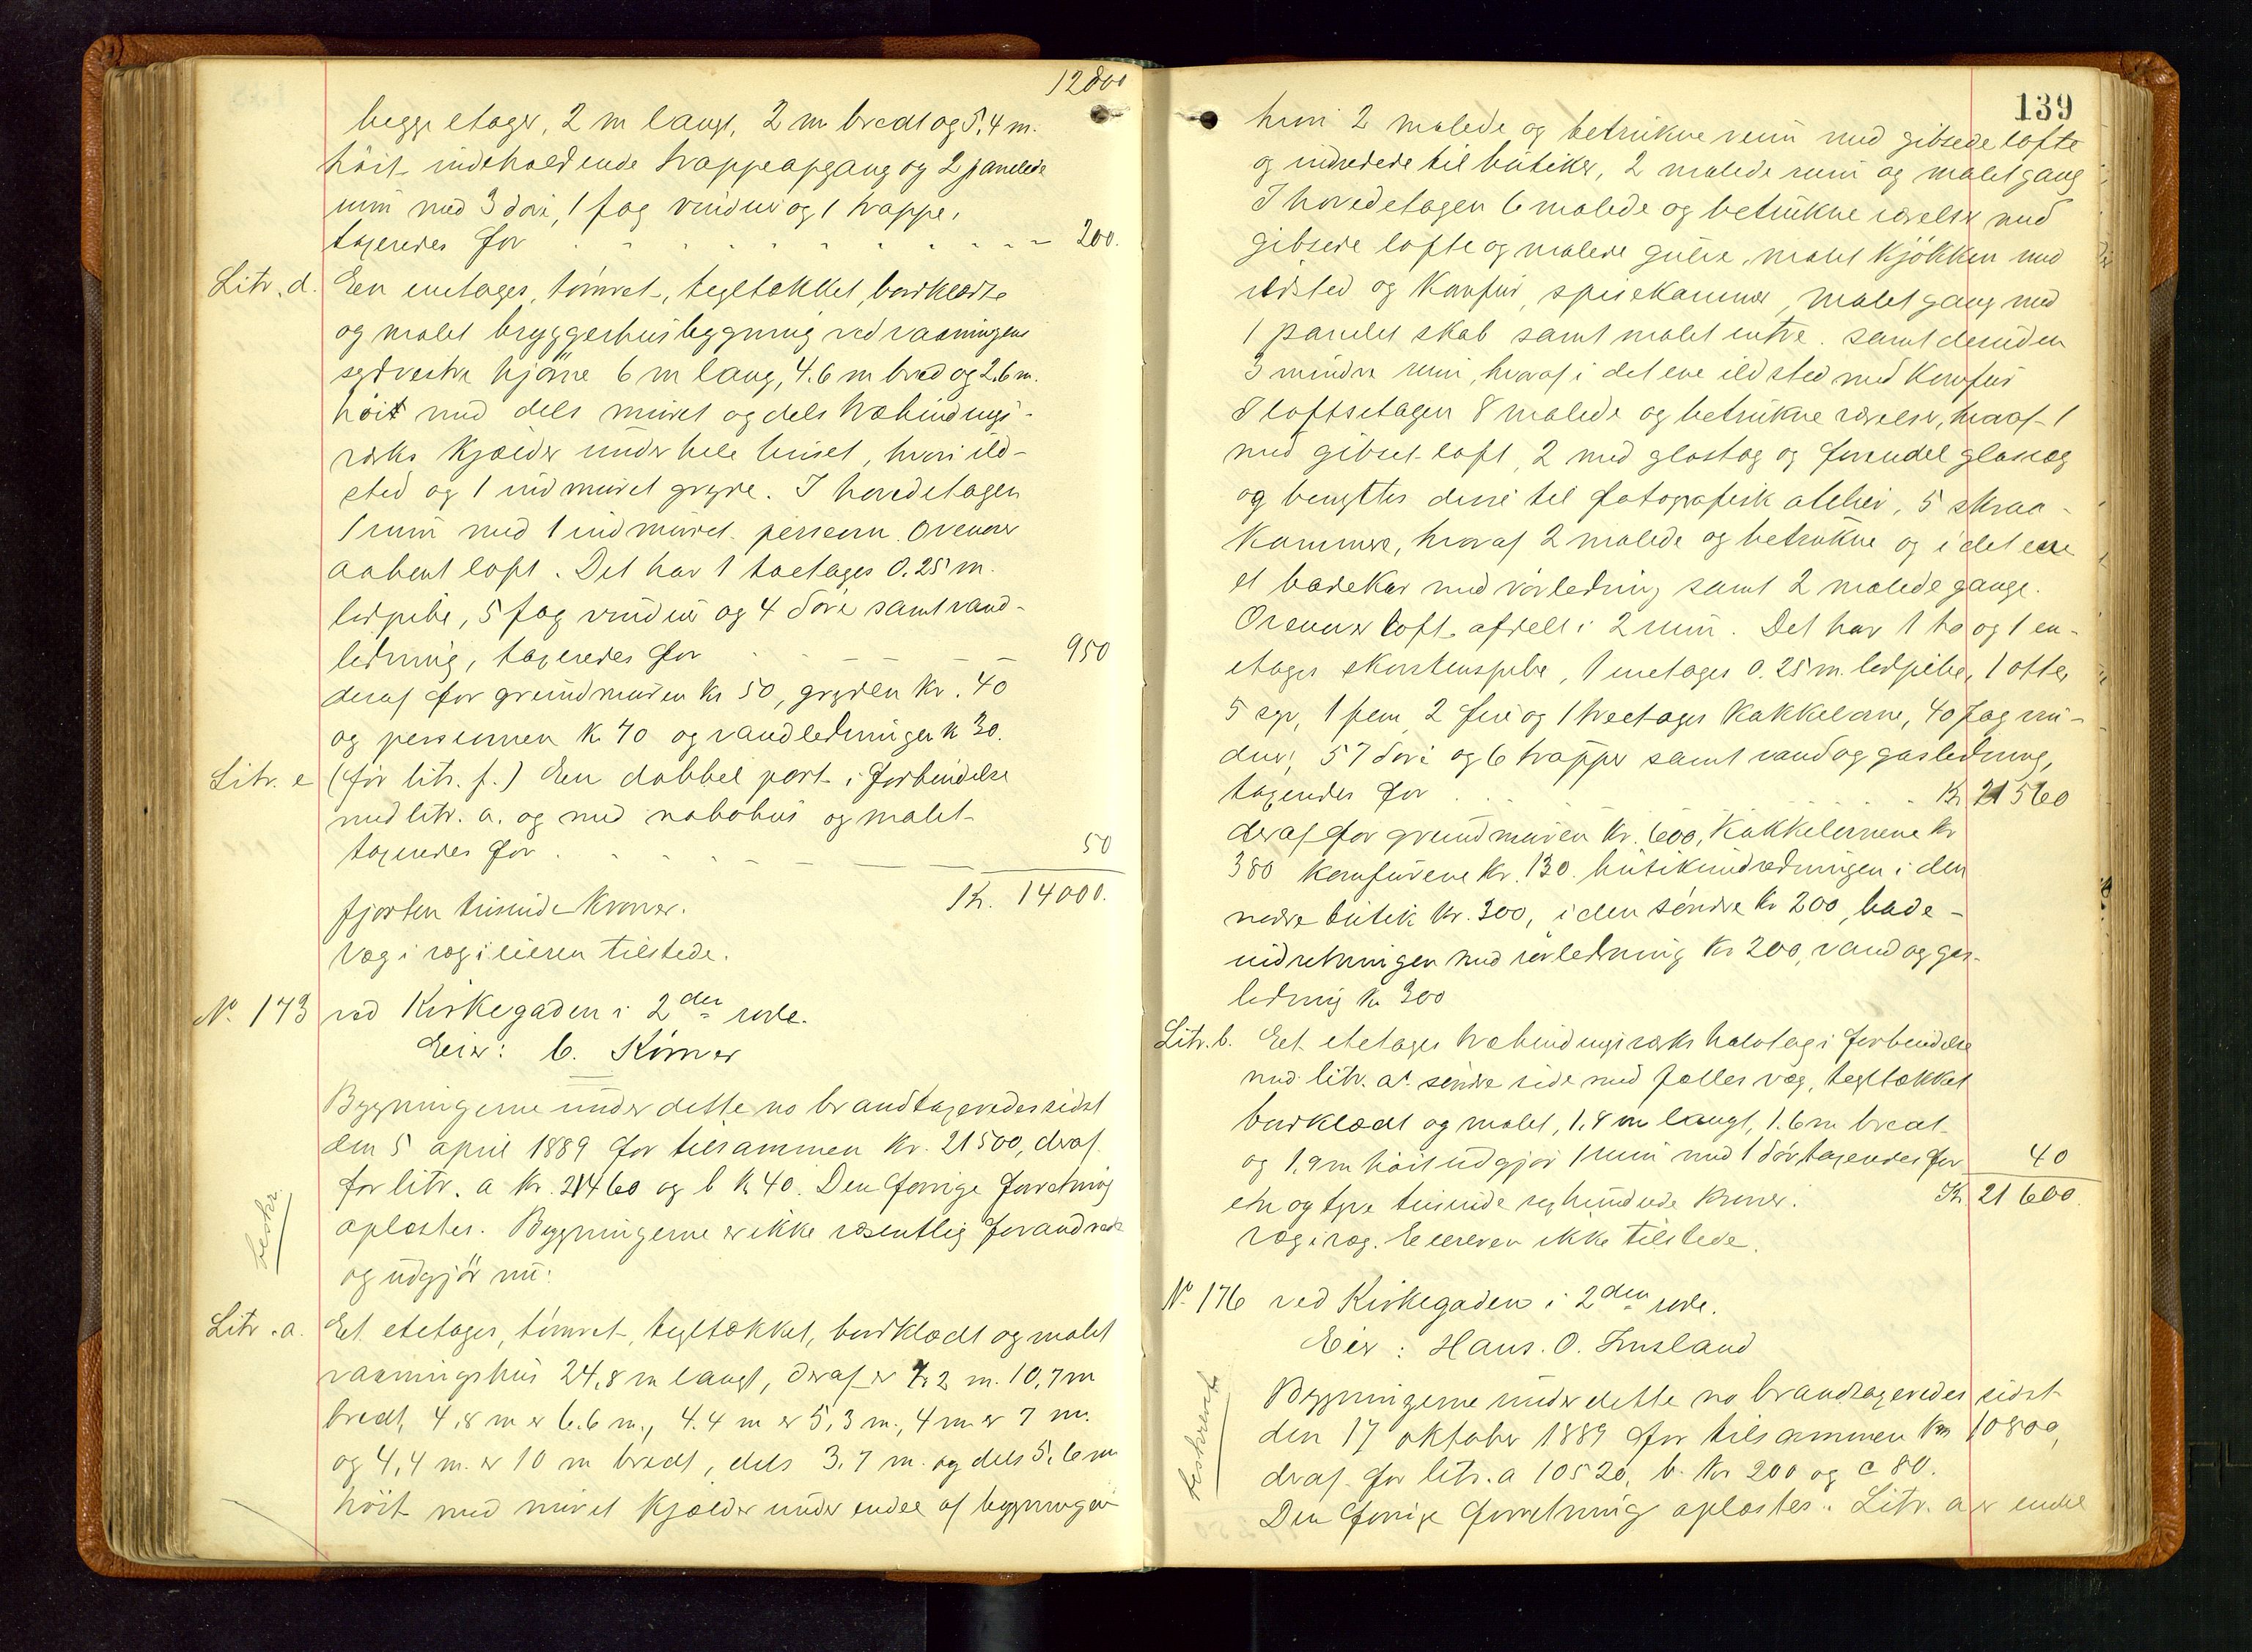 12800
begge etager, 2 m langt, 2 m bredt og 5,4 m.
höit indeholdende trappeopgang og 2 panelede
rum med 3 döre, 1 fag vinduer og 1 trappe,
taxeredes for 200.
Litr. d. Een enetages, tömret, tegltækket, bordklædte
og malet bryggerhusbygning ved vaaningens
sydvestre hjörne 6 m lang, 4.6 m bred og 2.6 m.
höit med dels muret og dels træbindings-
værks kjælder under hele huset, hvori ild-
sted og 1 indmuret gryde. I hovedetagen
1 rum med 1 indmuret persovn. Ovenover
aabent loft. Det har 1 toetages 0.25 m.
ledpibe, 5 fag vinduer og 4 döre samt vand-
ledning, taxeredes for 950
deraf for grundmuren kr 50, gryden kr. 40
og persovnen kr 70 og vandledningen kr 30.
Litr. e (för litr. f.) Een dobbel port i forbindelse
med litr. a. og med nabohus og malet
taxeredes for 50
Kr. 14000.
fjorten tusinde kroner.
Væg i væg i eieren tilstede.
No. 173 ved Kirkegaden i 2den rode.
Eier: C. Körner
Bygningerne under dette no brandtaxeredes sidst
den 5 april 1889 for tilsammen kr. 21500, deraf
for litr. a kr. 21460 og b kr 40. Den forrige forretning
oplæstes. Bygningerne er ikke væsentlig forandrede
beskr.
og udgjör nu:
Litr. a. Et etetages, tömret, tegltækket, bordklædt og malet
vaaningshus 24,8 m langt, deraf er 7.2 m. 10,7 m
bredt, 4,8 m er 6.6 m., 4.4 m er 5,3 m., 4 m er 7 m.
og 4,4 m. er 10 m bredt, dels 3.7 m. og dels 5,6 m
höit med muret kjælder under endel af bygningen
139
hvori 2 malede og betrukne rum med gibsede lofte
og indredede til butiker, 2 malede rum og malet gang
I hovedetagen 6 malede og betrukne værelser med
gibsede lofte og malede gulve, malet kjökken med
ildsted og komfur, spisekammer, malet gang med
1 panelet skab samt malet entre. samt desuden
3 mindre rum, hvoraf i det ene ildsted med komfur
I loftsetagen 8 malede og betrukne værelser, hvoraf 1
med gibset loft, 2 med glastag og forendel glasvæg
og benyttes disse til fotografisk atelier, 5 skraa-
kammere, hvoraf 2 malede og betrukne og i det ene
et badekar med rörledning samt 2 malede gange.
Ovenover loft afdelt i 2 rum. Det har 1 to og 1 en-
etages skorstenspibe, 1 enetages 0.25 m. ledpibe, 1 otte,
5 syv, 1 fem, 2 fire og 1 treetages kakkelovne, 40 fag vin-
duer, 57 döre og 6 trapper samt vand og gasledning,
taxeredes for Kr 21560
deraf for grundmuren kr. 600, kakkelovnene kr
380 komfurene kr. 130. butikindredningen i den
nedre butik kr. 300, i den söndre kr 200, bade-
indretningen med rörledning kr 200, vand og gas-
ledning kr 300
Litr. b. Eet etetages træbindingsværks halvtag i forbindelse
med litr. as söndre side med fælles væg, tegltækket
bordklædt og malet, 1,8 m langt, 1.6 m bredt
og 1.9 m höit udgjör 1 rum med 1 dör, taxeredes for 40
Kr. 21600.
en og tyve tusinde sexhundrede kroner.
væg i væg. Eieren ikke tilstede.
No. 176 ved Kirkegaden i 2den rode.
Eier: Hans. O.
beskrevet
Bygningerne under dette no brandtaxeredes sidst
den 17 oktober 1889 for tilsammen kr 10800,
deraf for litr. a 10520, b. kr 200 og c 80.
Den forrige forretning oplæstes. Litr. a er endel